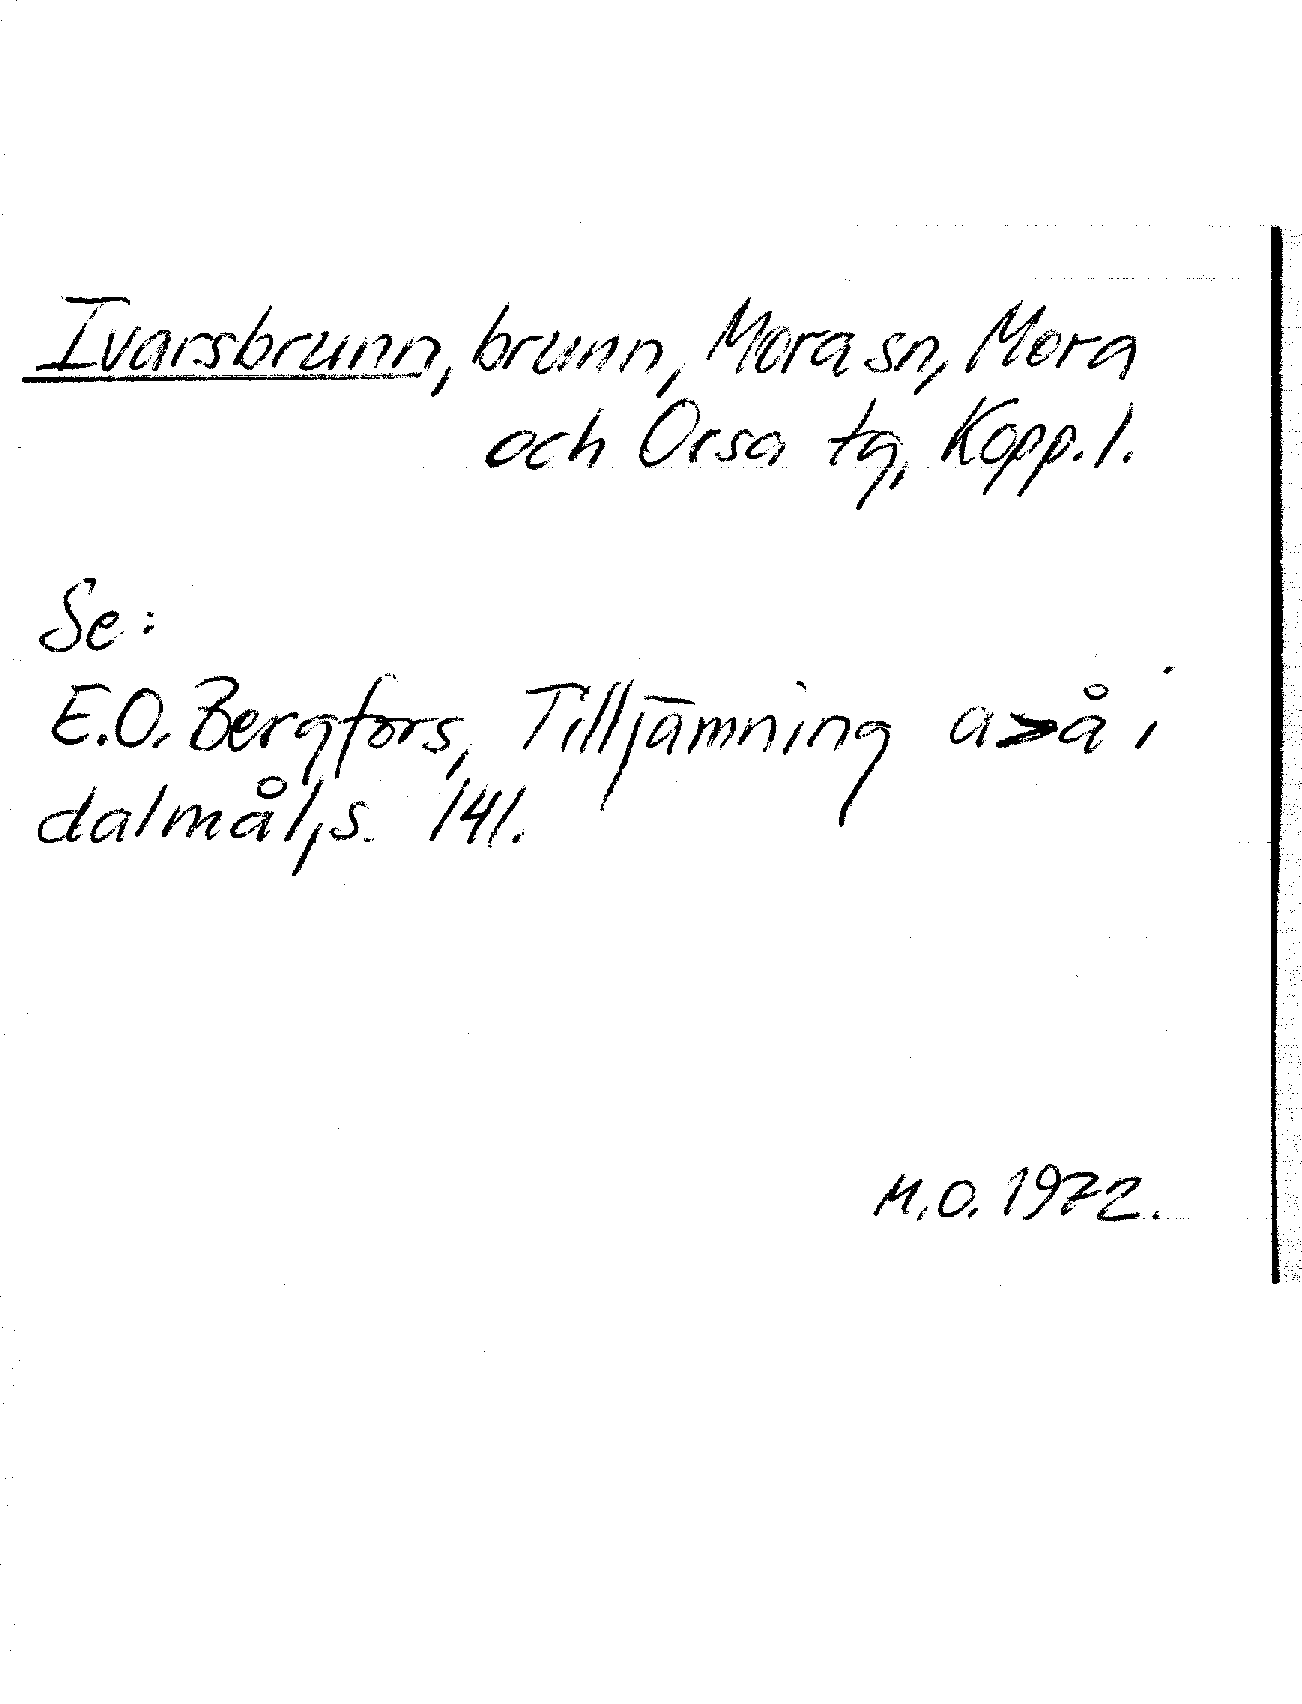 Ivarsbrunn, brunn, Mora sn, Mora
och Orsa tg, Kopp. l.
Se:
E.O. Bergfors, Tilljämning a>å i
dalmål, s. 141.
M.O. 1972.